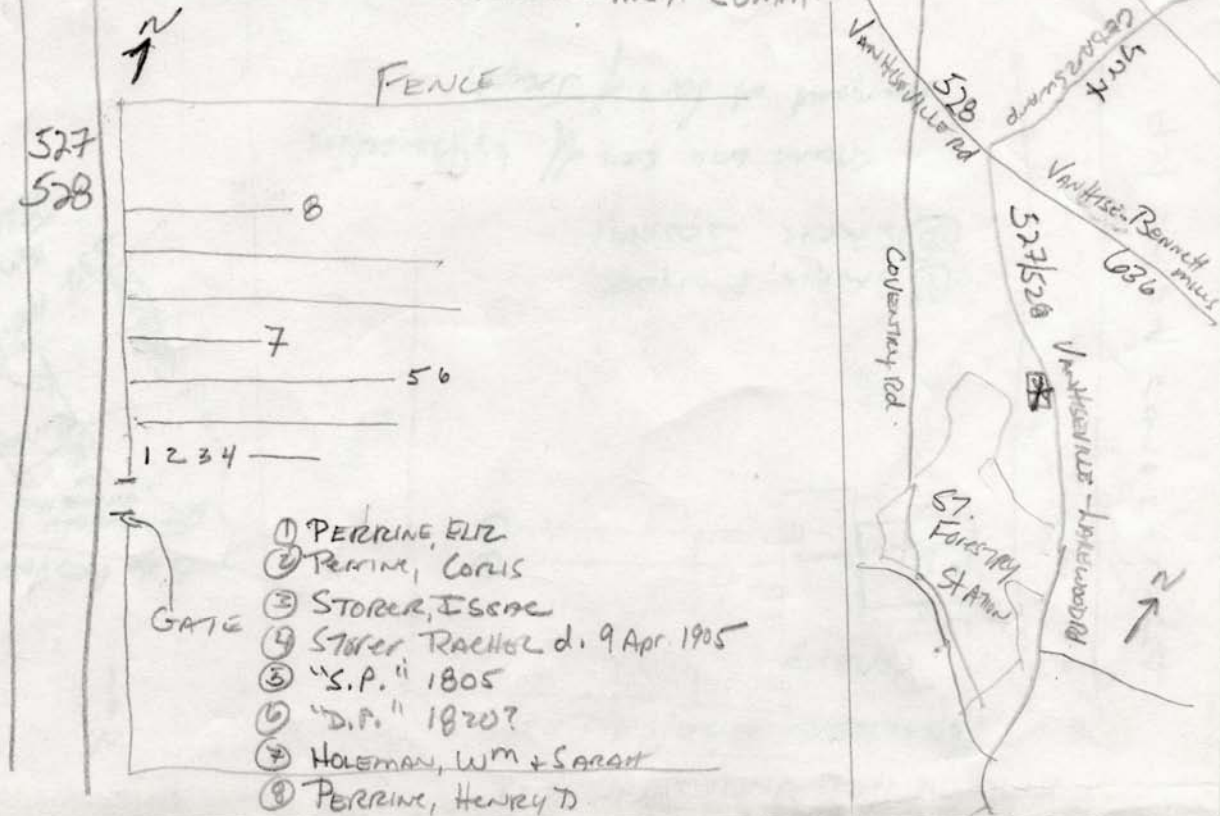 N
FENCE
527
528
8
7
5 6
1 2 3 4
GATE
① PERRINE, ELIZ
② PERRINE, CORLIS
③ STORER, ISSAC
④ STORER RACHEL d. 9 Apr. 1905
⑤ "S.P." 1805
⑥ "D.P." 1820?
⑦ HOLEMAN, Wm + SARAH
⑧ PERRINE, HENRY D
VANHISEVILLE Rd
528
CEDAR SWAMP
527
VANHISE-BENNETT MILLS
636
527/528
COVENTRY Rd.
VANHISEVILLE-LAKEWOOD Rd.
ST.
FORESTRY
STATION
N